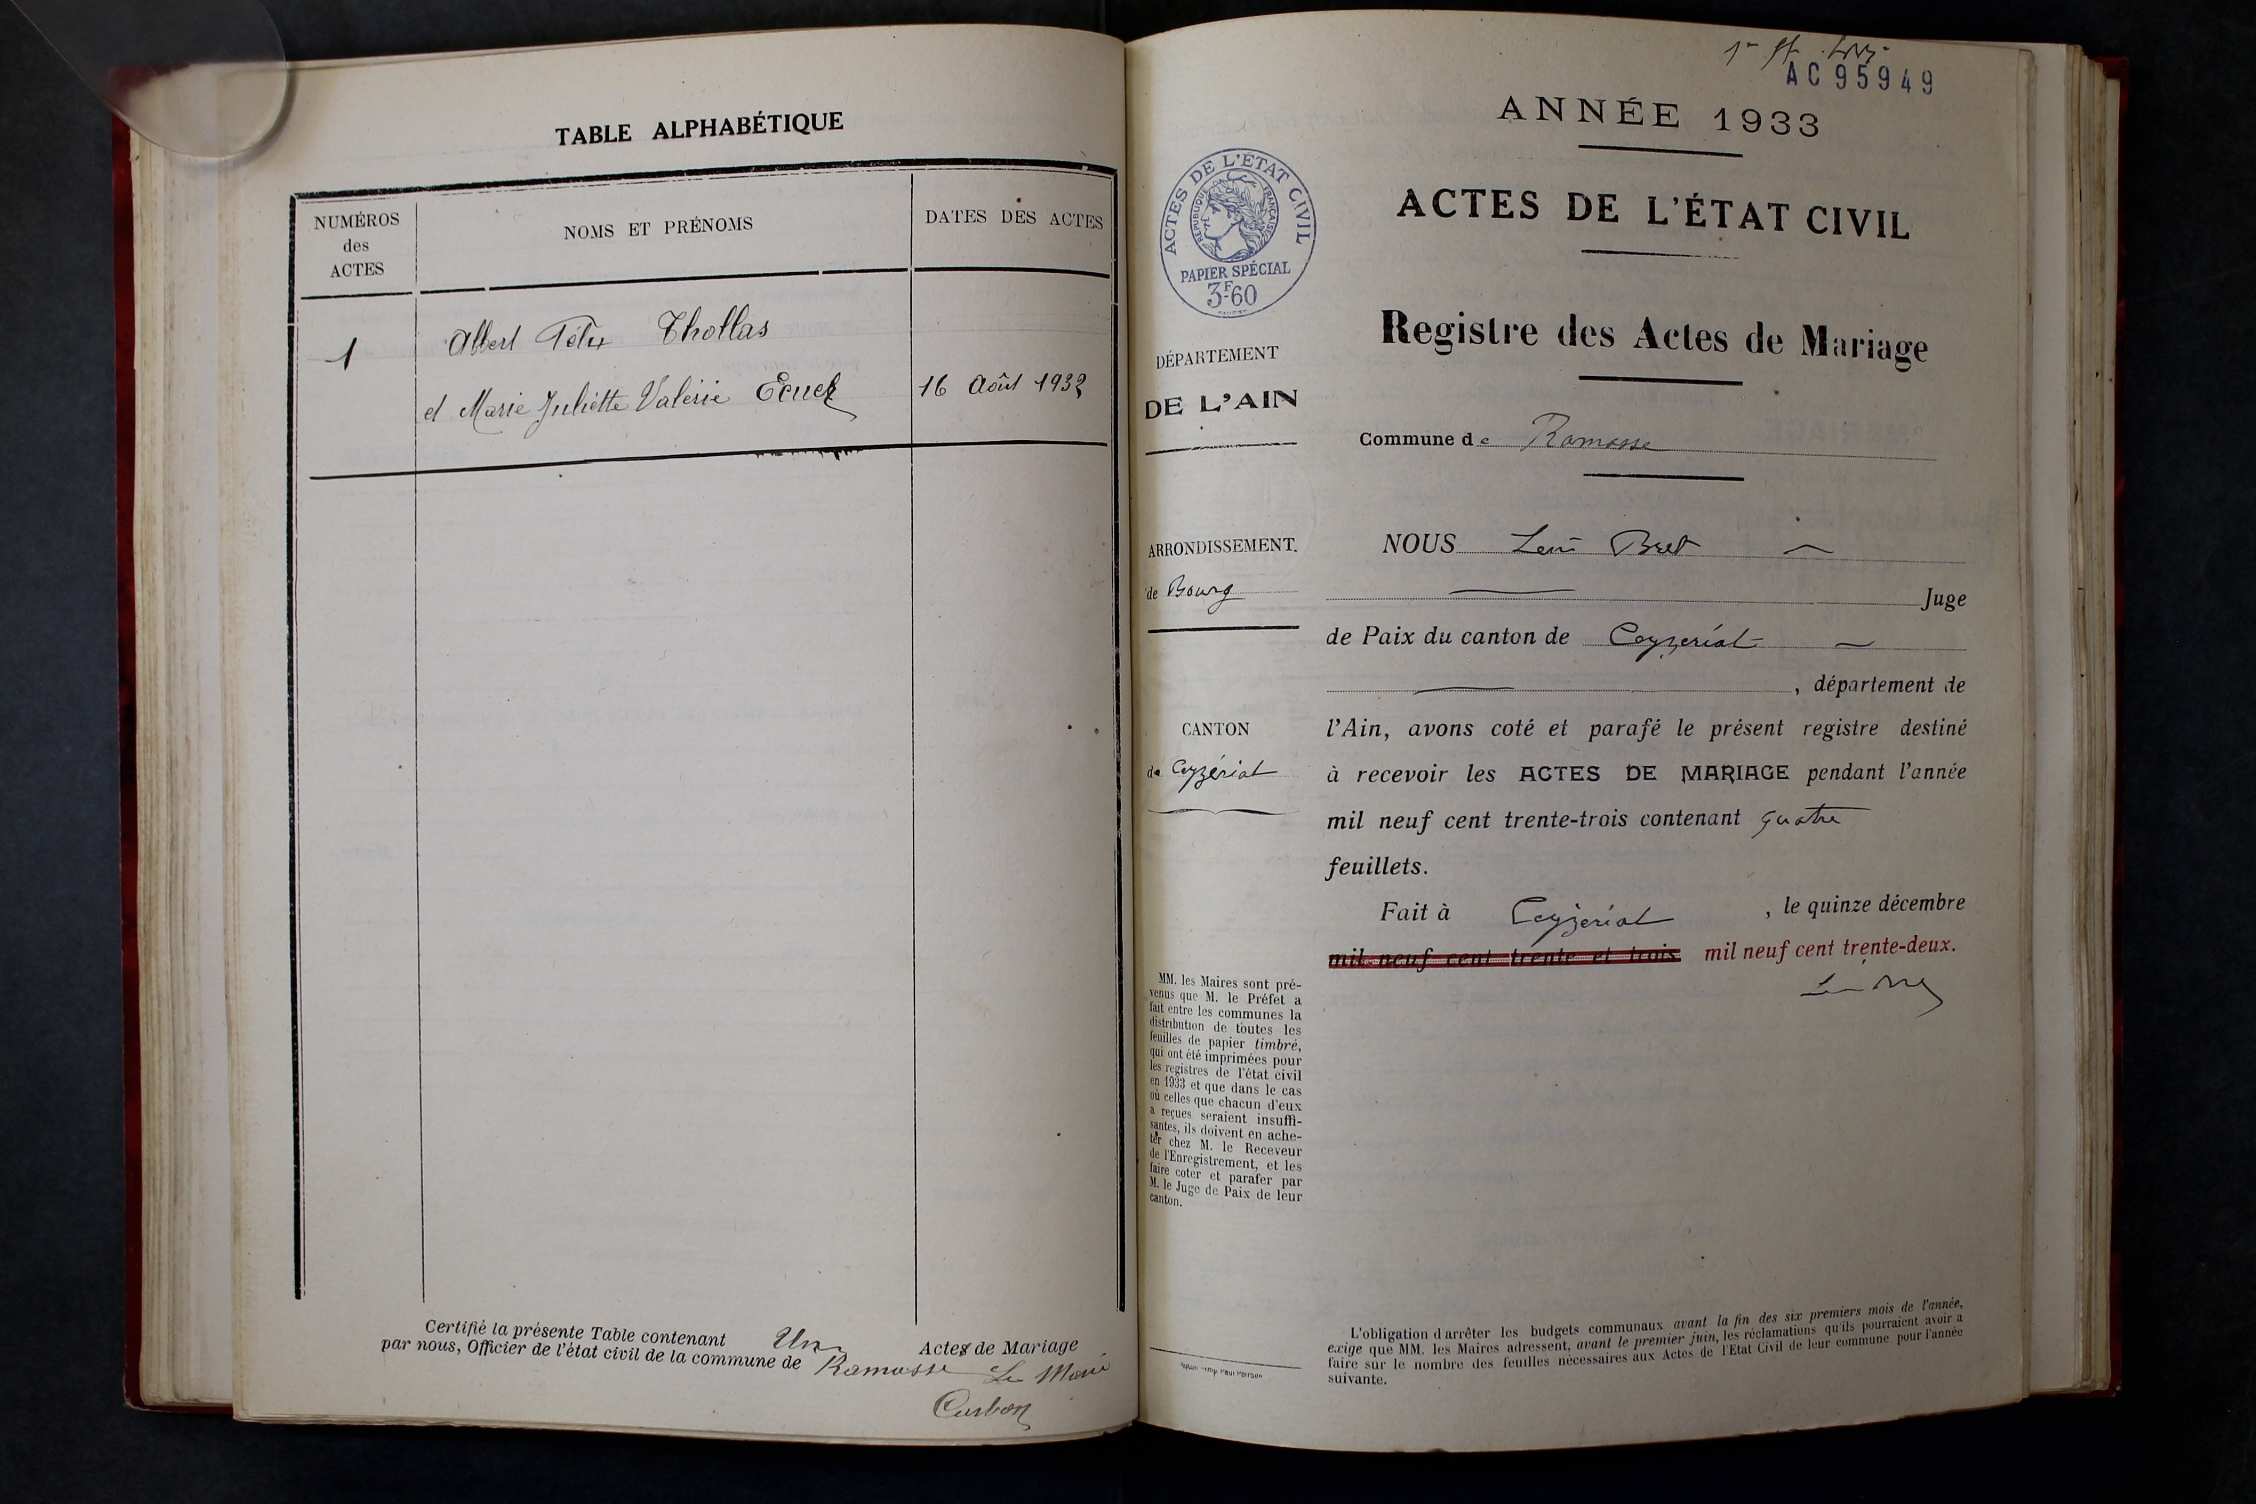 TABLE ALPHABÉTIQUE
NUMÉROS
des
ACTES
NOMS ET PRÉNOMS
DATES DES ACTES
1
Albert Félix Thollas
et Marie Juliette Valérie
16 Août 1932
Certifié la présente Table contenant Un Actes de Mariage
par nous, Officier de l'état civil de la commune de Ramasse Le Maire
Curbon
AC 95949
ANNÉE 1933
ACTES DE L'ÉTAT CIVIL
Registre des Actes de Mariage
Commune de Ramasse
ACTES DE L'ETAT CIVIL
RÉPUBLIQUE FRANÇAISE
PAPIER SPÉCIAL
3F60
DÉPARTEMENT
DE L'AIN
ARRONDISSEMENT.
de Bourg
CANTON
de Ceyzériat
MM. les Maires sont pré-
venus que M. le Préfet a
fait entre les communes la
distribution de toutes les
feuilles de papier timbré,
qui ont été imprimées pour
les registres de l'état civil
en 1933 et que dans le cas
où celles que chacun d'eux
a reçues seraient insuffi-
santes, ils doivent en ache-
ter chez M. le Receveur
de l'Enregistrement, et les
faire coter et parafer par
M. le Juge de Paix de leur
canton.
NOUS Léon Bret
Juge
de Paix du canton de Ceyzeriat
, département de
l'Ain, avons coté et parafé le présent registre destiné
à recevoir les ACTES DE MARIAGE pendant l'année
mil neuf cent trente-trois contenant quatre
feuillets.
Fait à Ceyzeriat , le quinze décembre
mil neuf cent trente et trois mil neuf cent trente-deux.
L'obligation d'arrêter les budgets communaux avant la fin des six premiers mois de l'année,
exige que MM. les Maires adressent, avant le premier juin, les réclamations qu'ils pourraient avoir à
faire sur le nombre des feuilles nécessaires aux Actes de l'Etat Civil de leur commune pour l'année
suivante.